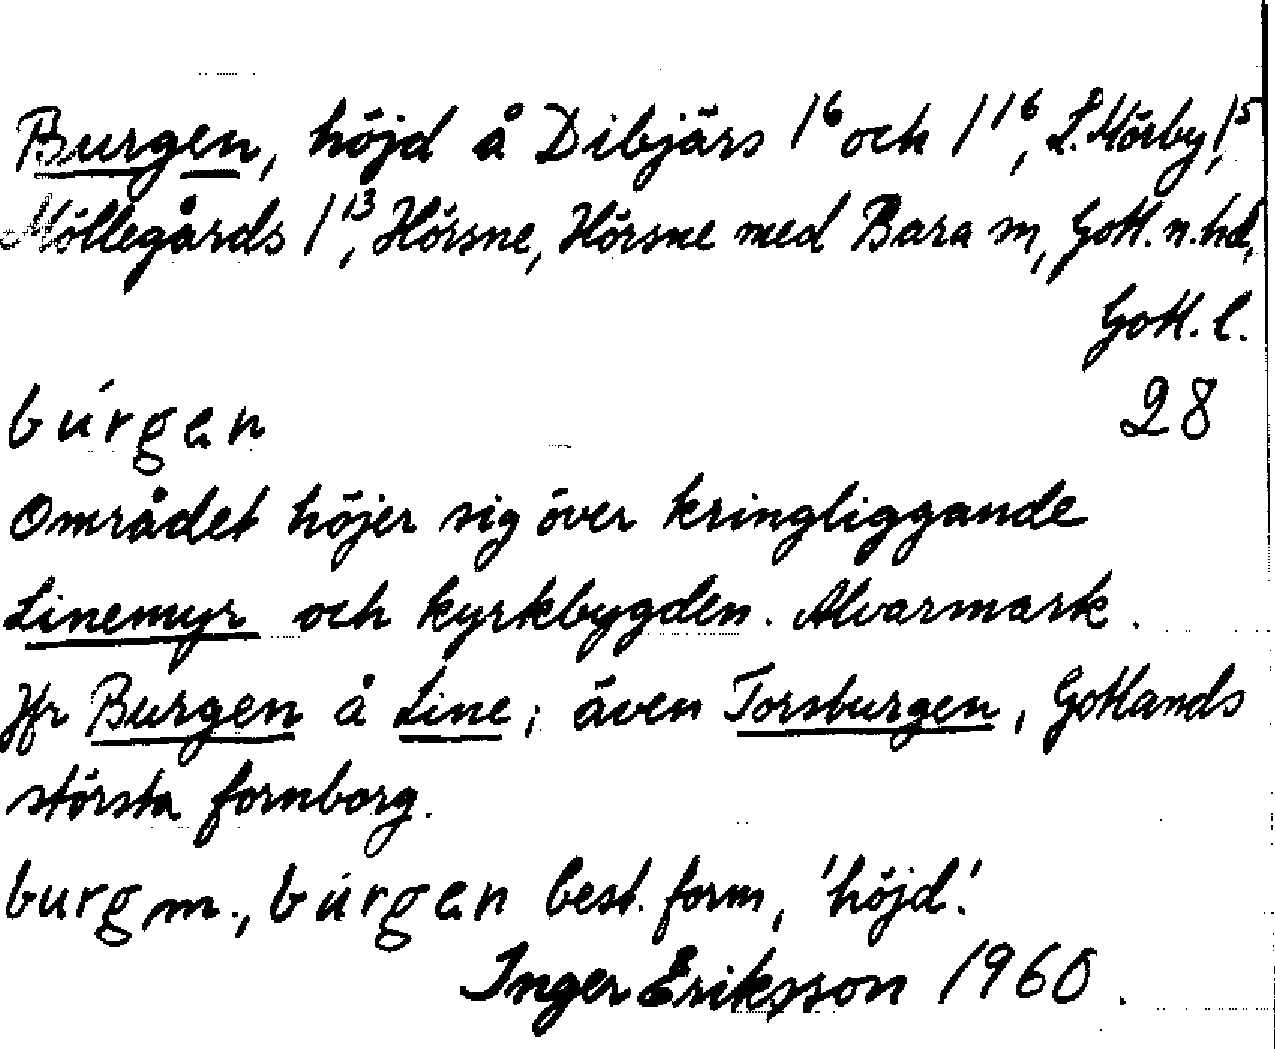 Burgen, höjd å Dibjärs 1⁶ och 1¹⁶, L. Mörby 1⁵,
Möllegårds 1¹³, Hörsne, Hörsne med Bara sn, Gotl. n. hd,
Gotl. l.
bu´rgen 28
Området höjer sig över kringliggande
Linemyr och kyrkbygden. Alvarmark.
Jfr Burgen å Line; även Torsburgen, Gotlands
största fornborg.
burg m., bu´rgen best. form, 'höjd'.
Inger Eriksson 1960.